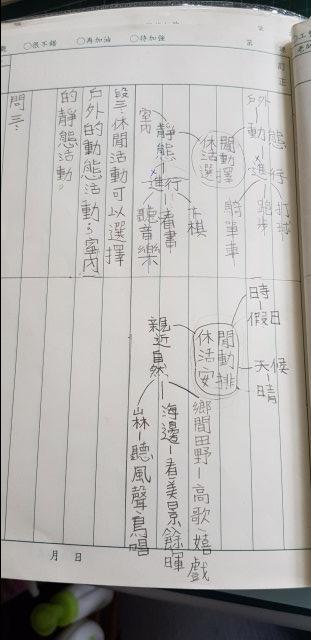 ○很不錯 ○再加油 ○待加強
第
訂正
戶外
動態
進行
打球
跑步
騎單車
休閒活動選擇
室內
靜態
進行
下棋
看書
聽音樂
段三:休閒活動可以選擇
戶外的動態活動;室內
的靜態活動。
問三:
時
假日
天候
晴
休閒活動安排
親近自然
鄉間田野-高歌嬉戲
海邊-看美景餘暉
山林-聽風聲鳥唱
月 日